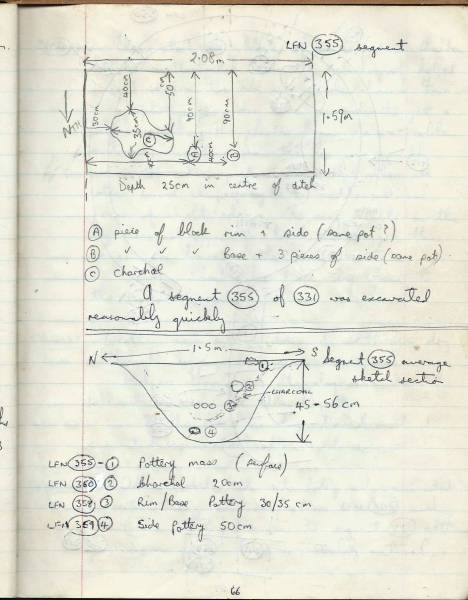 LFN 355 segment
2.08m
40cm
50cm
90cm
90cm
1.59m
30cm
35cm
NTH
C
A
40cm
B
Depth 25cm in centre of ditch
A piece of black rim + side (same pot?)
B ✓ ✓ ✓ Base + 3 pieces of side (same pot)
C charchol
A segment 355 of 331 was excavated
reasonably quickly
N 1.5m S Segment 355 average
sketch section
1
2
CHARCOAL
3
45-56cm
4
LFN 355-1 Pottery mass (surface)
LFN 360 2 Charchol 20cm
LFN 358 3 Rim/Base Pottery 30/35 cm
LFN 359 4 Side Pottery 50cm
66